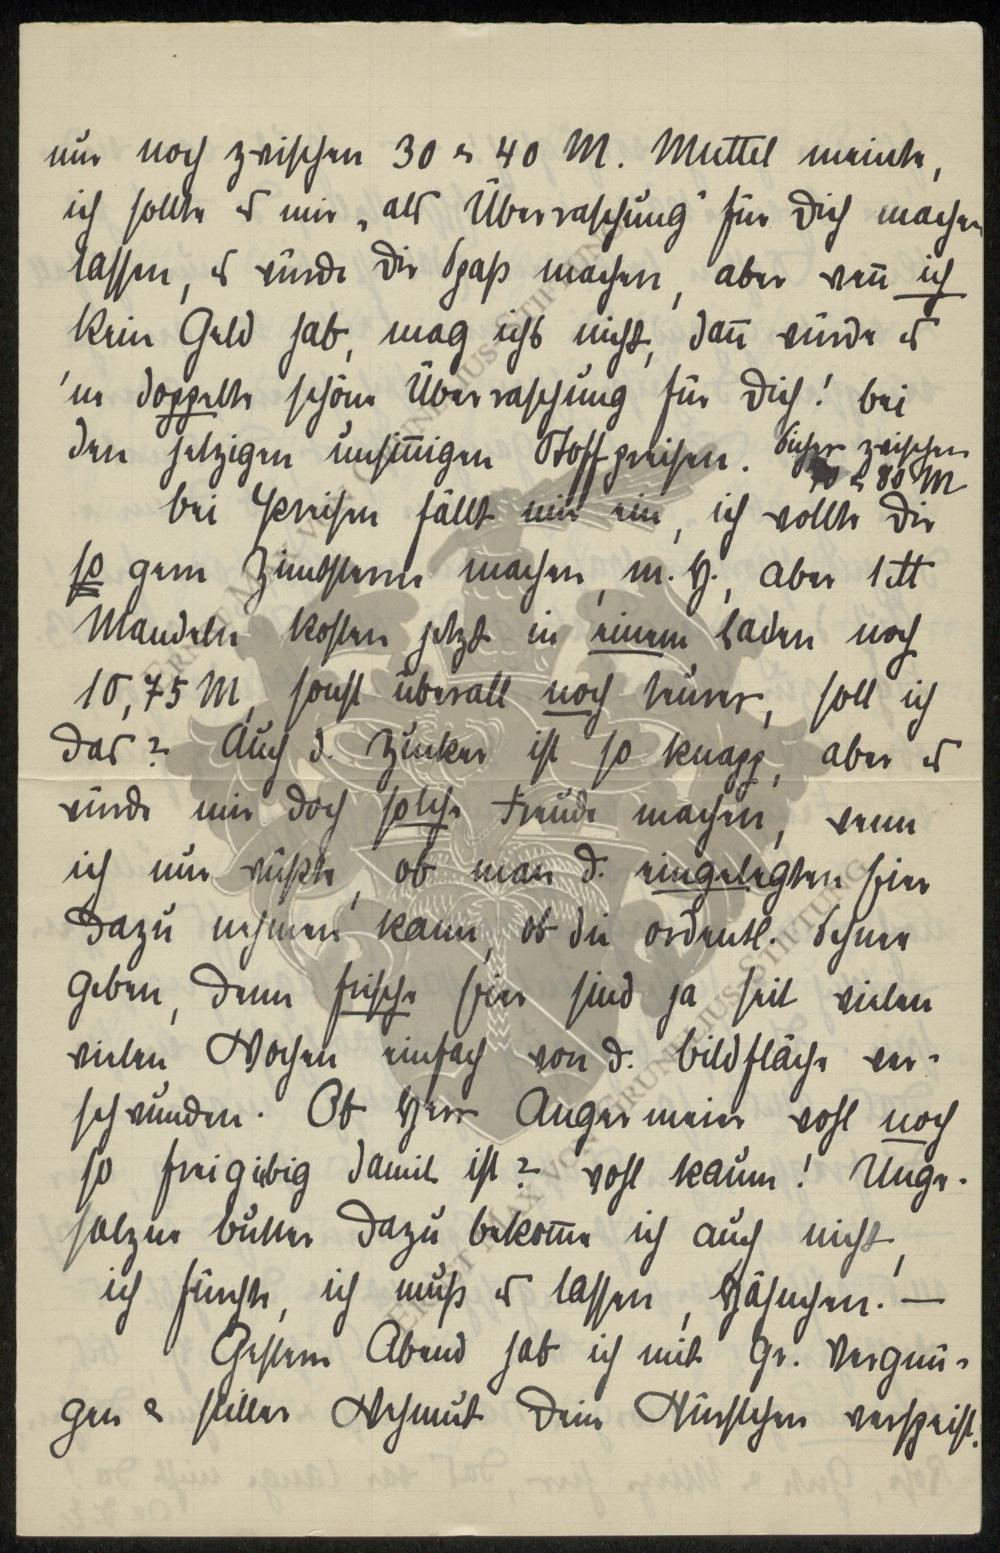 nur noch zwischen 30 & 40 M. Muttel meinte,
ich sollte es mir „als Überraschung" für Dich machen
lassen, es würde Dir Spaß machen, aber wenn ich
kein Geld hab, mag ichs nicht, dann würde es
'ne doppelte schöne Überraschung für Dich! bei
den jetzigen unsinnigen Stoffpreisen. Sicher zwischen
70 & 80 M
bei Preisen fällt mir ein, ich wollte Dir
so gern Zimtsterne machen, m. H., aber 1 ℔
Mandeln kosten jetzt in einem Laden noch
10,75 M, sonst überall noch teurer, soll ich
das? Auch d. Zucker ist so knapp, aber es
würde mir doch solche Freude machen, wenn
ich nur wüßte, ob man d. eingelegten Eier
dazu nehmen kann, ob die ordentl. Schnee
geben, denn frische Eier sind ja seit vielen
vielen Wochen einfach von d. Bildfläche ver-
schwunden. Ob Herr Angermeier wohl noch
so freigibig damit ist? wohl kaum! Unge-
salzne Butter dazu bekomme ich auch nicht,
ich fürchte, ich muß es lassen, Hähnchen. —
Gestern Abend hab ich mit gr. Vergnü-
gen & stiller Wehmut Dein Würstchen verspeist.
ERNST MAX VON GRUNELIUS-STIFTUNG
ERNST MAX VON GRUNELIUS-STIFTUNG